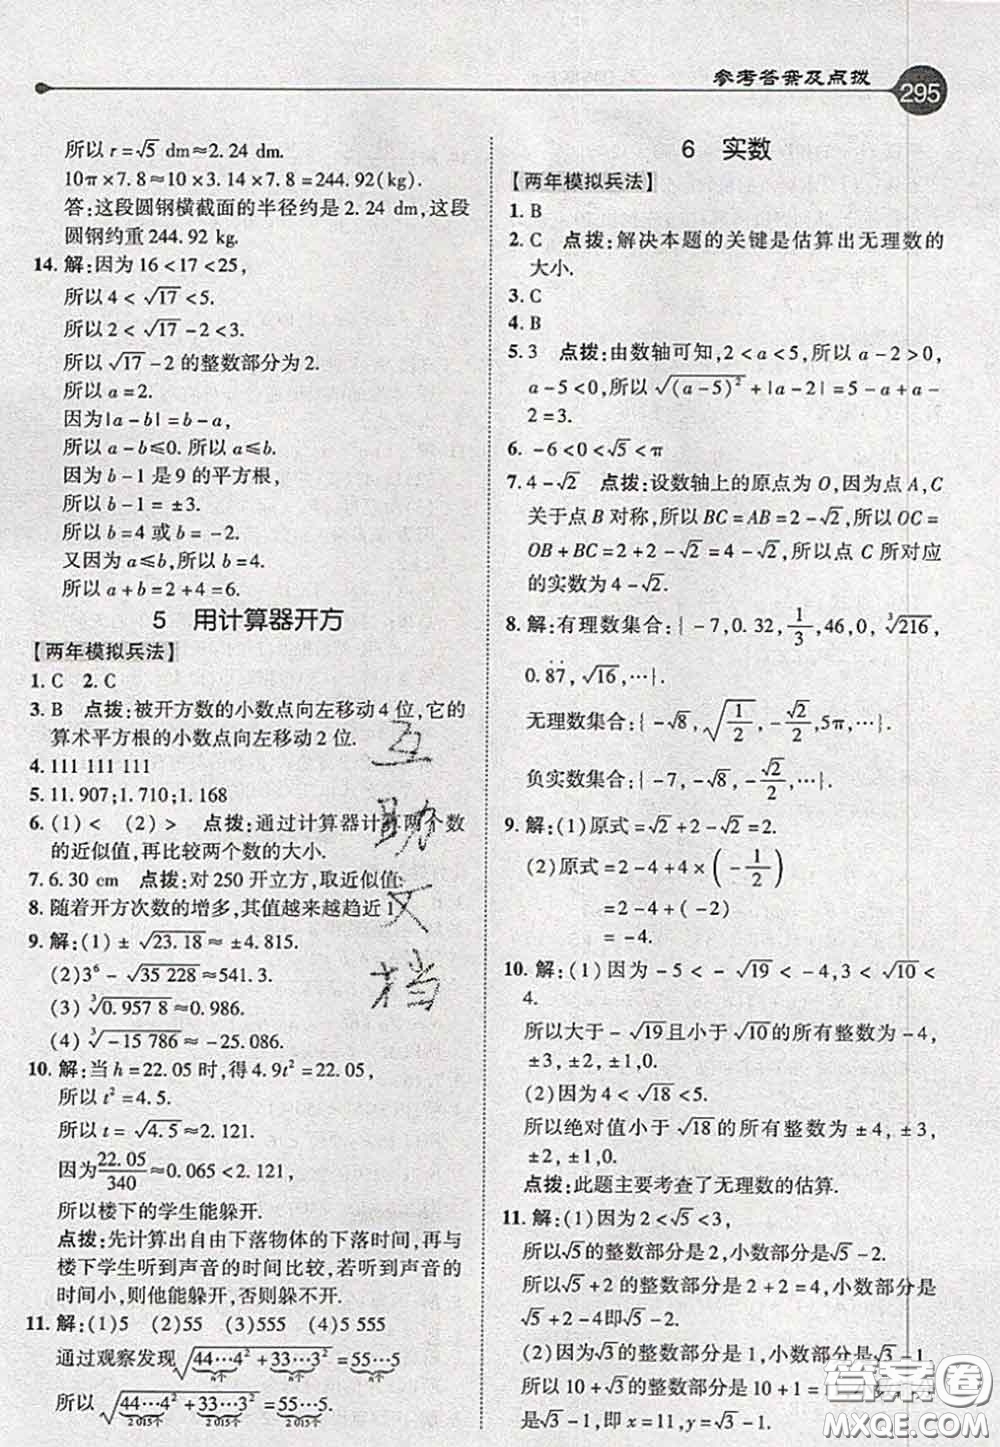 参考答案及点拨
295
所以 r=√5 dm≈2.24 dm.
10π×7.8≈10×3.14×7.8=244.92(kg).
答:这段圆钢横截面的半径约是2.24 dm,这段
圆钢约重244.92 kg.
14. 解:因为16<17<25,
所以4<√17<5.
所以2<√17-2<3.
所以√17-2的整数部分为2.
所以 a=2.
因为|a-b|=b-a,
所以 a-b≤0. 所以 a≤b.
因为 b-1 是9的平方根,
所以 b-1=±3.
所以 b=4 或 b=-2.
又因为 a≤b,所以 b=4.
所以 a+b=2+4=6.
5 用计算器开方
【两年模拟兵法】
1. C 2. C
3. B 点拨:被开方数的小数点向左移动4位,它的
算术平方根的小数点向左移动2位.
4. 111 111 111
5. 11.907;1.710;1.168
6. (1)< (2)> 点拨:通过计算器计算两个数
的近似值,再比较两个数的大小.
7. 6.30 cm 点拨:对250开立方,取近似值.
8. 随着开方次数的增多,其值越来越趋近1.
9. 解:(1)±√23.18≈±4.815.
(2)3⁶-√35 228≈541.3.
(3)∛0.957 8≈0.986.
(4)∛-15 786≈-25.086.
10. 解:当 h=22.05 时,得4.9t²=22.05,
所以 t²=4.5.
所以 t=√4.5≈2.121.
因为22.05/340≈0.065<2.121,
所以楼下的学生能躲开.
点拨:先计算出自由下落物体的下落时间,再与
楼下学生听到声音的时间比较,若听到声音的
时间小,则他能躲开,否则不能躲开.
11. 解:(1)5 (2)55 (3)555 (4)5 555
通过观察发现√(44…4²+33…3²)=55…5
n个 n个 n个
所以√(44…4²+33…3²)=55…5.
2 015个 2 015个 2 015个
6 实数
【两年模拟兵法】
1. B
2. C 点拨:解决本题的关键是估算出无理数的
大小.
3. C
4. B
5. 3 点拨:由数轴可知,2<a<5,所以 a-2>0,
a-5<0,所以√(a-5)²+|a-2|=5-a+a-
2=3.
6. -6<0<√5<π
7. 4-√2 点拨:设数轴上的原点为O,因为点A,C
关于点B对称,所以BC=AB=2-√2,所以OC=
OB+BC=2+2-√2=4-√2,所以点C所对应
的实数为4-√2.
8. 解:有理数集合:{-7,0.32,1/3,46,0,∛216,
0.8̇7̇,√16,…}.
无理数集合:{-√8,√(1/2),-√2/2,5π,…}.
负实数集合:{-7,-√8,-√2/2,…}.
9. 解:(1)原式=√2+2-√2=2.
(2)原式=2-4+4×(-1/2)
=2-4+(-2)
=-4.
10. 解:(1)因为-5<-√19<-4,3<√10<
4.
所以大于-√19且小于√10的所有整数为-4,
±3,±2,±1,0.
(2)因为4<√18<5.
所以绝对值小于√18的所有整数为±4,±3,
±2,±1,0.
点拨:此题主要考查了无理数的估算.
11. 解:(1)因为2<√5<3,
所以√5的整数部分是2,小数部分是√5-2.
所以√5+2的整数部分是2+2=4,小数部分是
√5+2-4即√5-2.
(2)因为√3的整数部分是1,小数部分是√3-1,
所以10+√3的整数部分是10+1=11,小数部分
是√3-1,即 x=11,y=√3-1.
互
助
文
档
答案圈
MXQE.COM